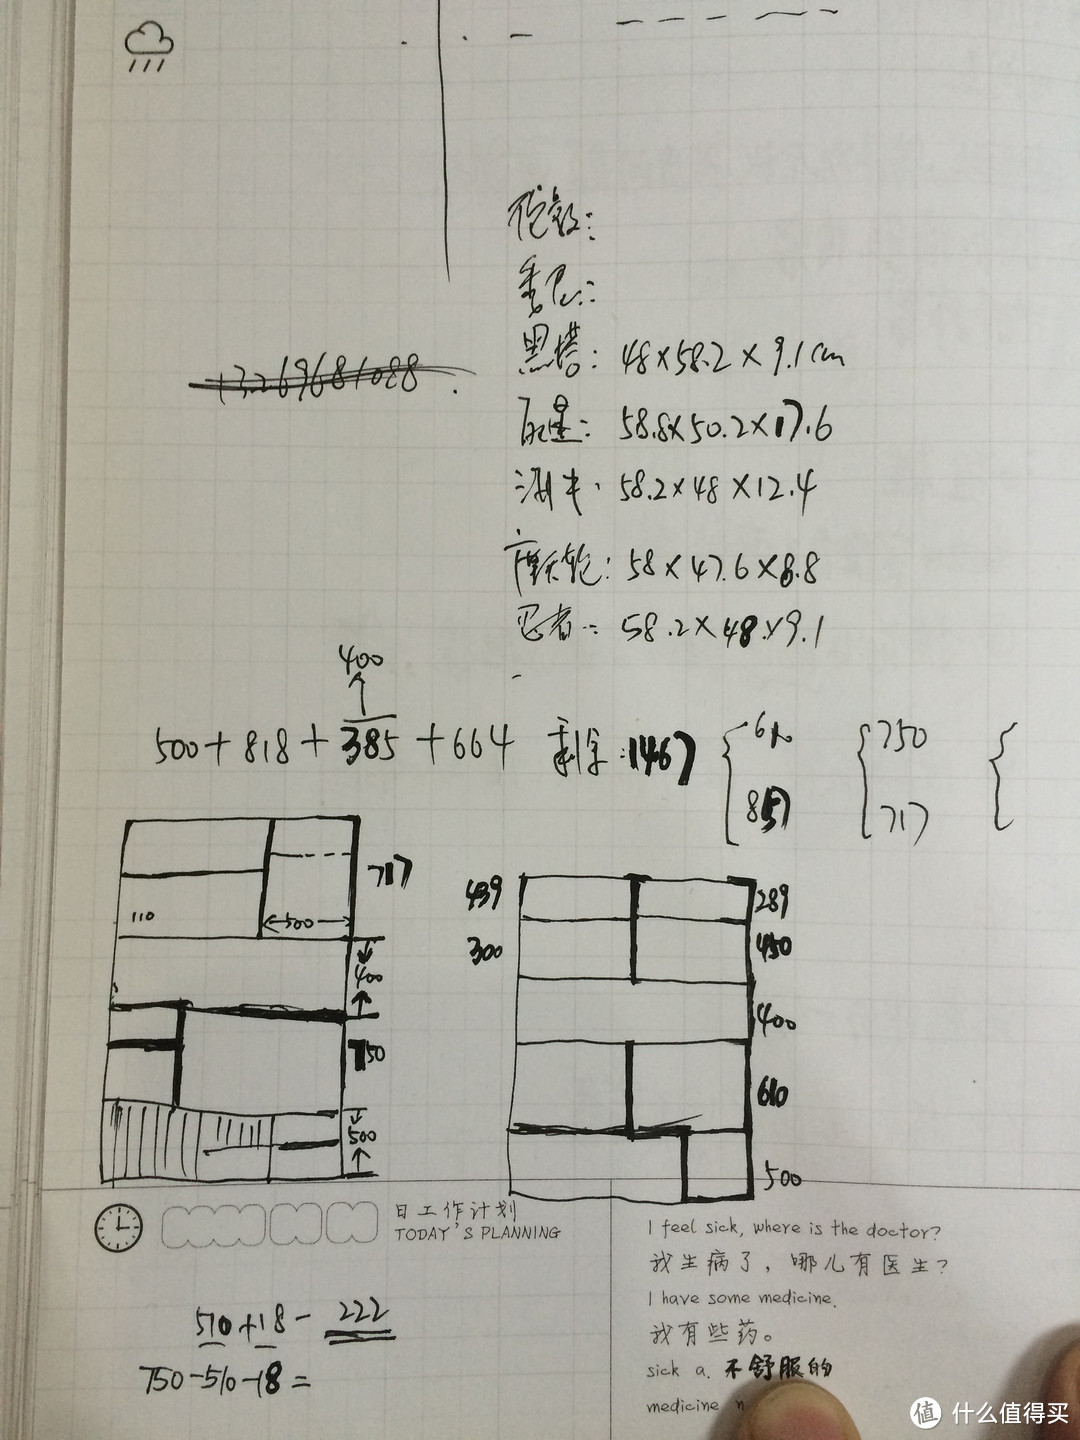 伦敦:
委尼:
黑塔: 48×58.2×9.1cm
+3269681088
死星: 58.8×50.2×17.6
58.2×48×12.4
摩天轮: 58×47.6×8.8
忍者: 58.2×48×9.1
400
500+818+385+664 剩余:1467
750
717
717
110
500
400
750
500
439
289
300
450
400
610
500
日工作计划
TODAY'S PLANNING
I feel sick, where is the doctor?
我生病了，哪儿有医生？
I have some medicine.
我有些药。
sick a. 不舒服的
medicine n
510+18- 222
750-510-18=
值 什么值得买